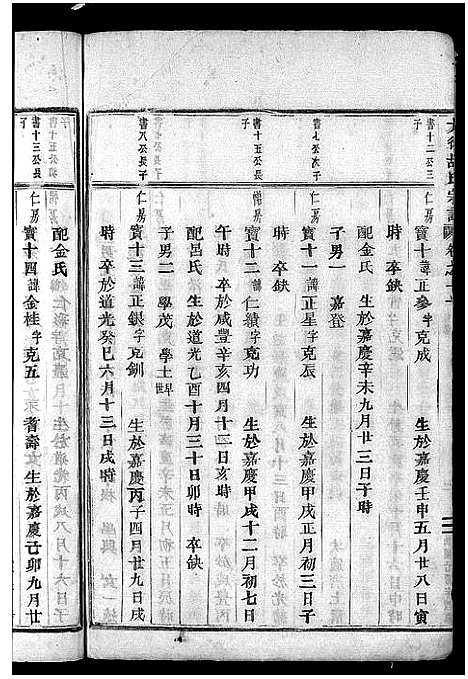 書十二公三子
寶十 諱正參 字克成 生於嘉慶壬申五月廿八日寅
時 卒缺
配金氏 生於嘉慶辛未九月廿三日子時
子男一 嘉登
書七公次子
仁房
寶十一 諱正星 字克辰 生於嘉慶甲戌正月初三日子
時 卒缺
書十五公長子
寶十二 諱仁績 字克功 生於嘉慶甲戌十二月初七日
午時 卒於咸豐辛亥四月十三日亥時
配邑氏 生於道光乙酉十月三十日卯時 卒缺
子男二 學茂 學士 早世
書八公長子
仁房
寶十三 諱正銀 字克釧 生於嘉慶丙子四月廿九日戌
時 卒於道光癸巳六月十三日戌時
配金氏
書十三公長子
仁房
寶十四 諱金桂 字克五 耆壽 生於嘉慶己卯九月廿